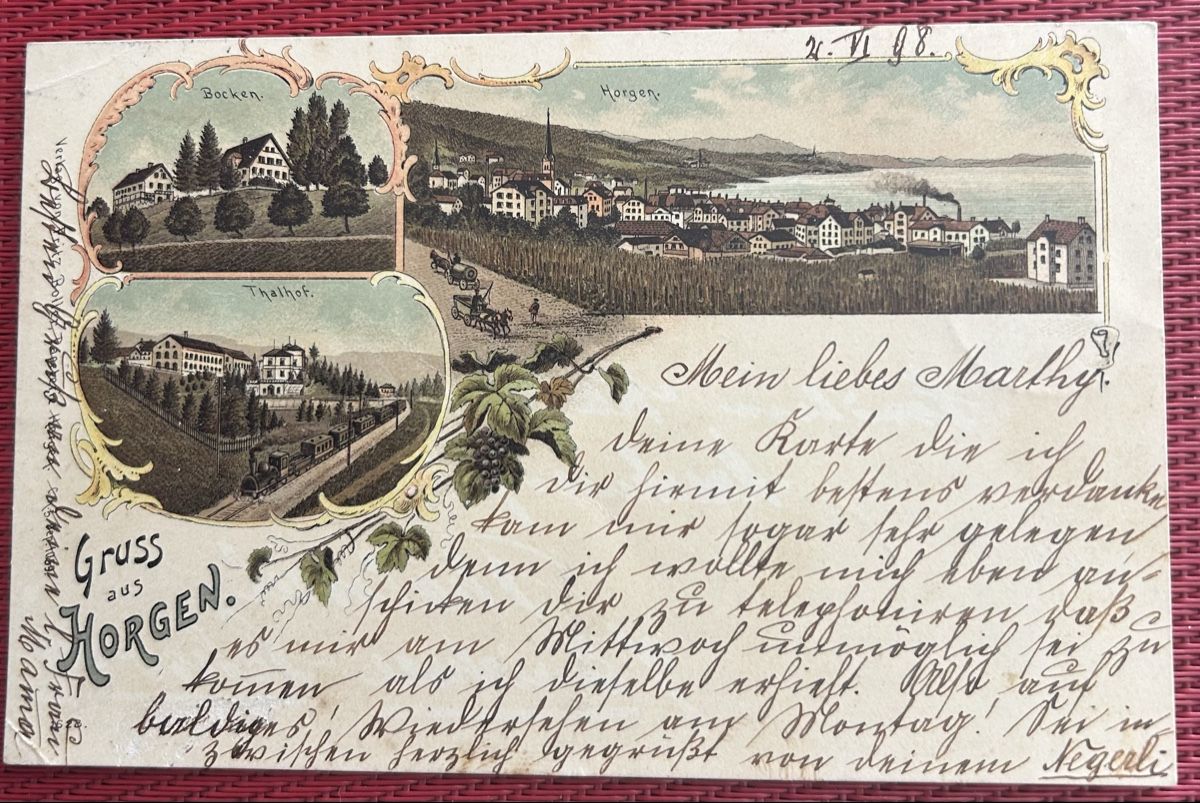 2. VI 98.
Bocken.
Horgen.
Thalhof.
Gruss
aus
HORGEN.
Mein liebes Marthy.
deine Karte die ich
dir hiemit bestens verdanke
kam mir sogar sehr gelegen,
denn ich wollte mich eben an-
schicken dir zu telephoniren daß
es mir am Mittwoch unmöglich sei zu
kommen als ich dieselbe erhielt. Also auf
baldiges Wiedersehen am Montag! Sei in
zwischen herzlich gegrüßt von deinem Negerli
Mama